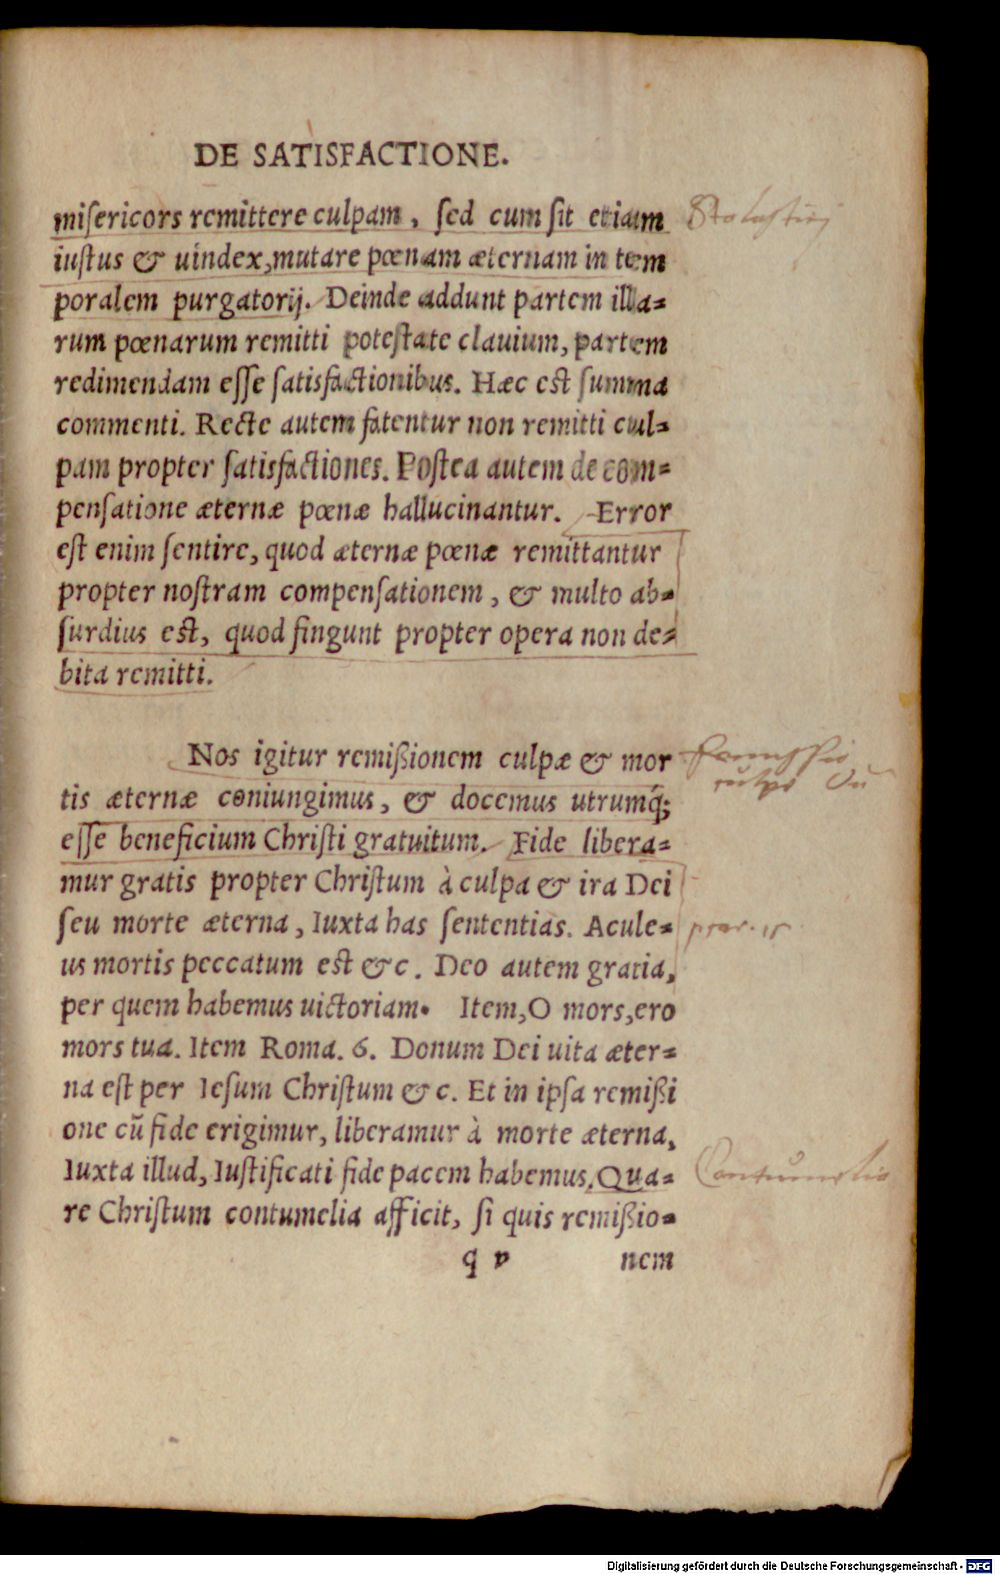 DE SATISFACTIONE.
misericors remittere culpam, sed cum sit etiam
iustus & uindex, mutare pœnam æternam in tem
poralem purgatorij. Deinde addunt partem illa=
rum pœnarum remitti potestate clauium, partem
redimendam esse satisfactionibus. Hæc est summa
commenti. Recte autem fatentur non remitti cul=
pam propter satisfactiones. Postea autem de com=
pensatione æternæ pœnæ hallucinantur. Error
est enim sentire, quod æternæ pœnæ remittantur
propter nostram compensationem, & multo ab=
surdius est, quod fingunt propter opera non de=
bita remitti.
Nos igitur remißionem culpæ & mor
tis æternæ coniungimus, & docemus utrumq́;
esse beneficium Christi gratuitum. Fide libera=
mur gratis propter Christum à culpa & ira Dei
seu morte æterna, Iuxta has sententias. Acule=
us mortis peccatum est &c. Deo autem gratia,
per quem habemus uictoriam. Item, O mors, ero
mors tua. Item Roma. 6. Donum Dei uita æter=
na est per Iesum Christum &c. Et in ipsa remißi
one cũ fide erigimur, liberamur à morte æterna,
Iuxta illud, Iustificati fide pacem habemus. Qua=
re Christum contumelia afficit, si quis remißio=
q v nem
Digitalisierung gefördert durch die Deutsche Forschungsgemeinschaft - DFG